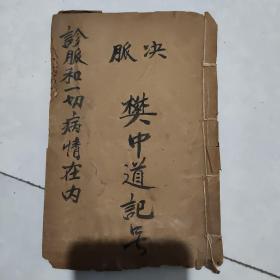 脉决
樊中道記号
診脈和一切病情在内